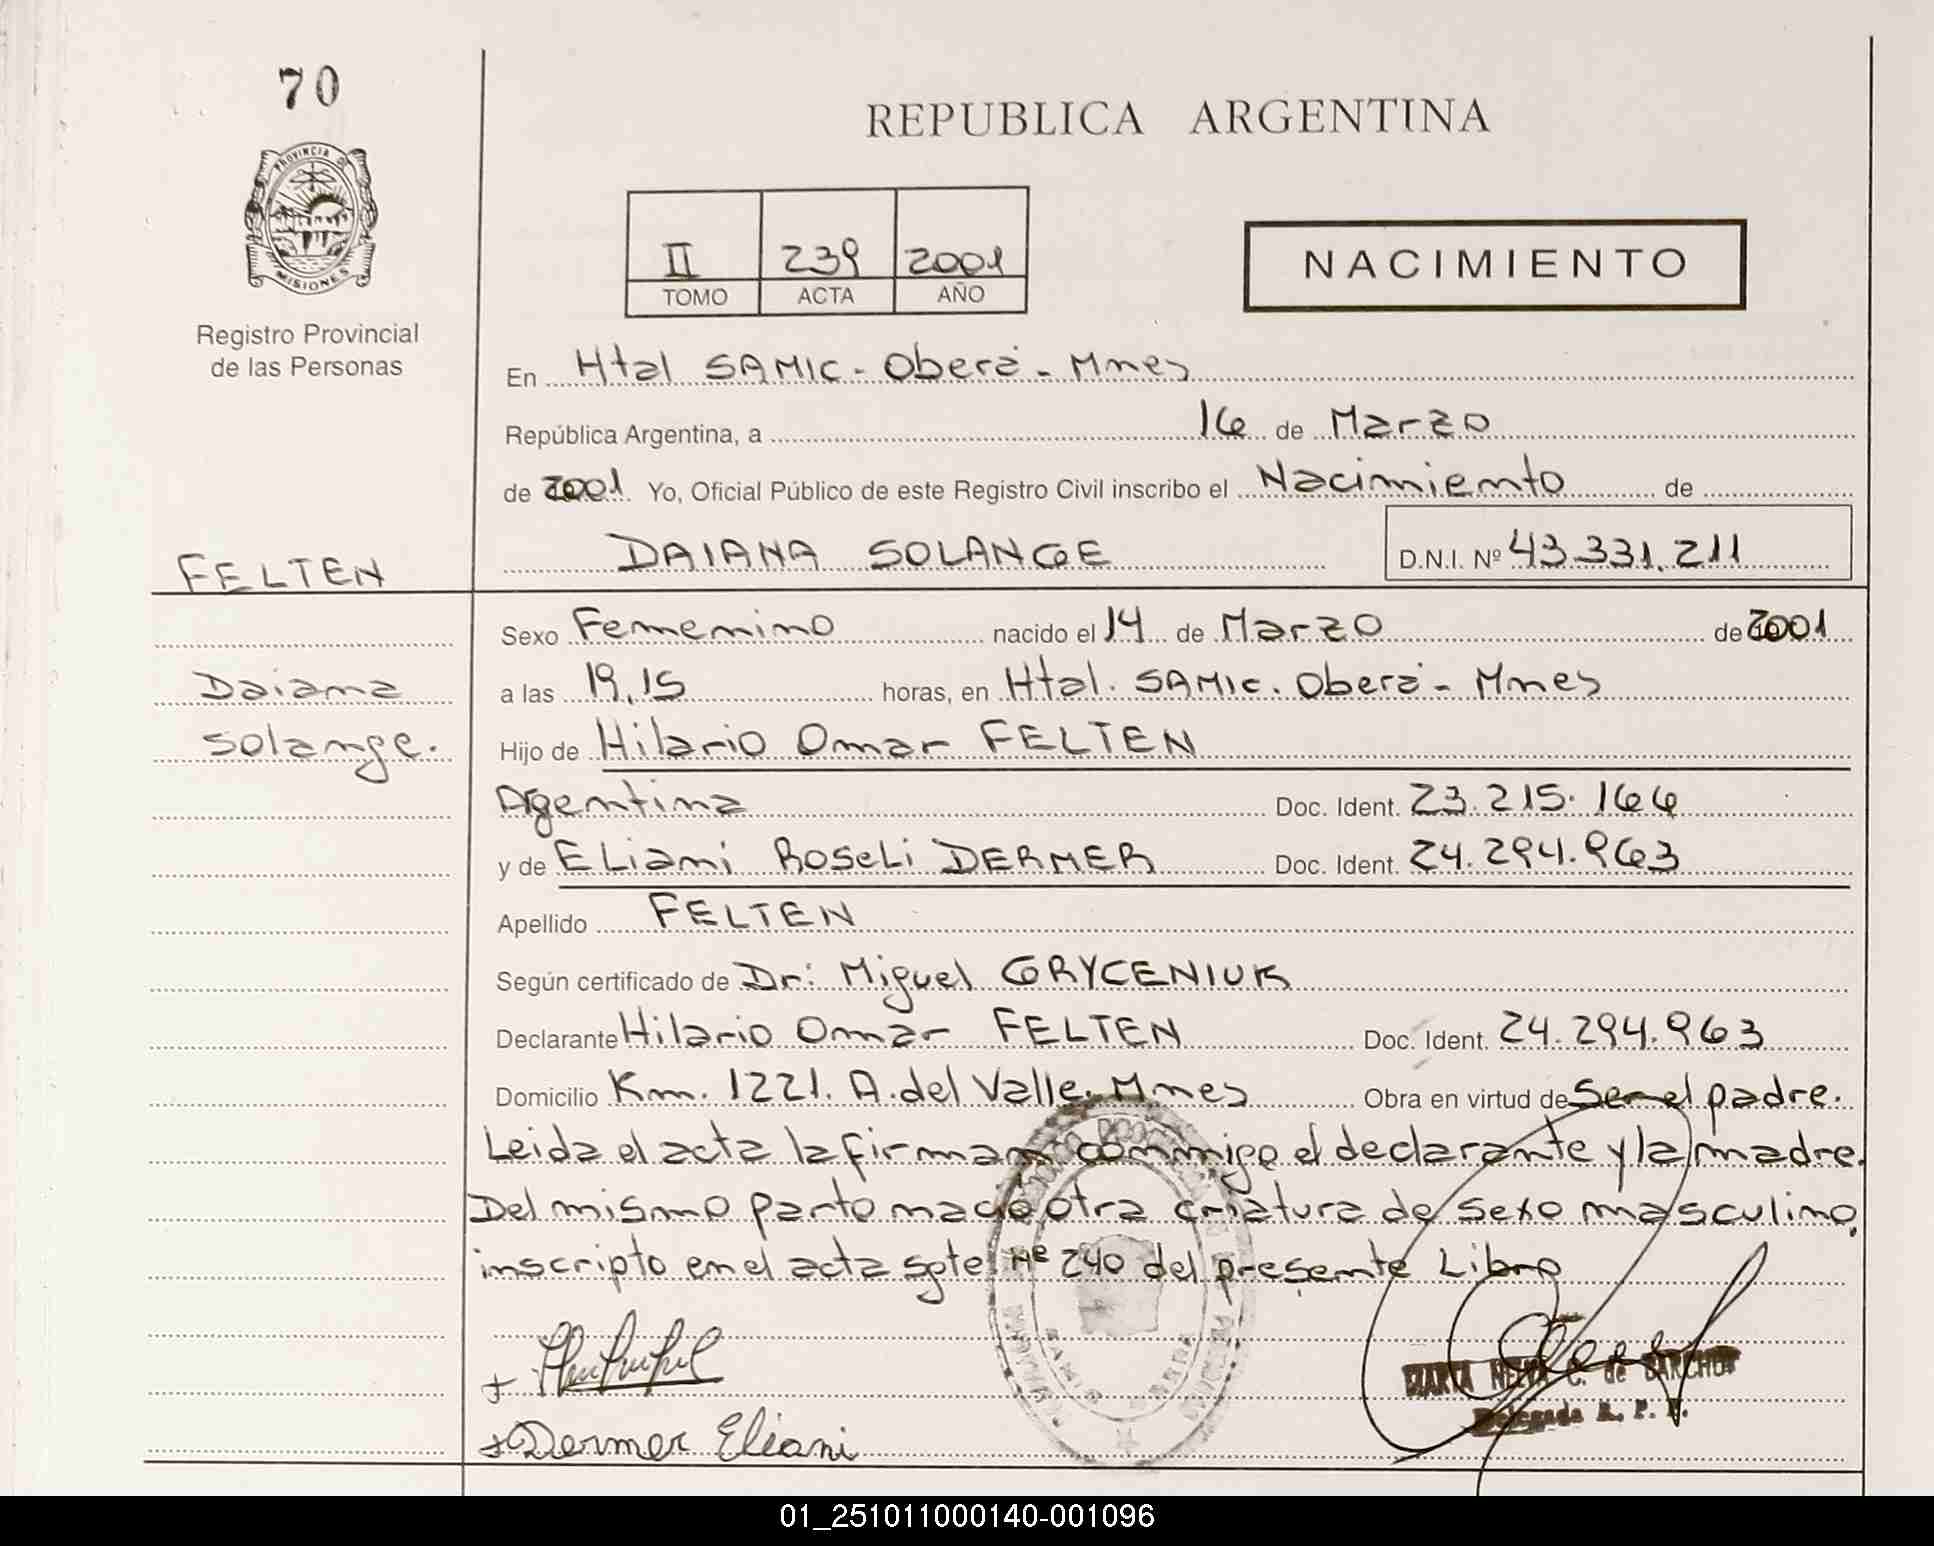 70
PROVINCIA DE
MISIONES
Registro Provincial
de las Personas
REPUBLICA ARGENTINA
II 239 2001
TOMO ACTA AÑO
NACIMIENTO
En Htal SAMIC - Oberá - Mnes
República Argentina, a 16 de Marzo
de 2001 Yo, Oficial Público de este Registro Civil inscribo el Nacimiento de
DAIANA SOLANGE D.N.I. Nº 43.331.211
FELTEN
Daiana
Solange.
Sexo Femenino nacido el 14 de Marzo de 2001
a las 19,15 horas, en Htal. SAMIC. Oberá - Mnes
Hijo de Hilario Omar FELTEN
Argentina Doc. Ident. 23.215.166
y de ELiani RoseLi DERMER Doc. Ident. 24.294.963
Apellido FELTEN
Según certificado de Dr: Miguel GRYCENIUK
Declarante Hilario Omar FELTEN Doc. Ident. 24.294.963
Domicilio Km. 1221. A. del Valle. Mnes Obra en virtud de Ser el padre.
Leida el acta la firman conmigo el declarante y la madre.
Del mismo parto nació otra criatura de sexo masculino,
inscripto en el acta sgte Nº 240 del presente Libro
Dermer Eliani
MARTA C. de
Delegada R. P. P.
01_251011000140-001096